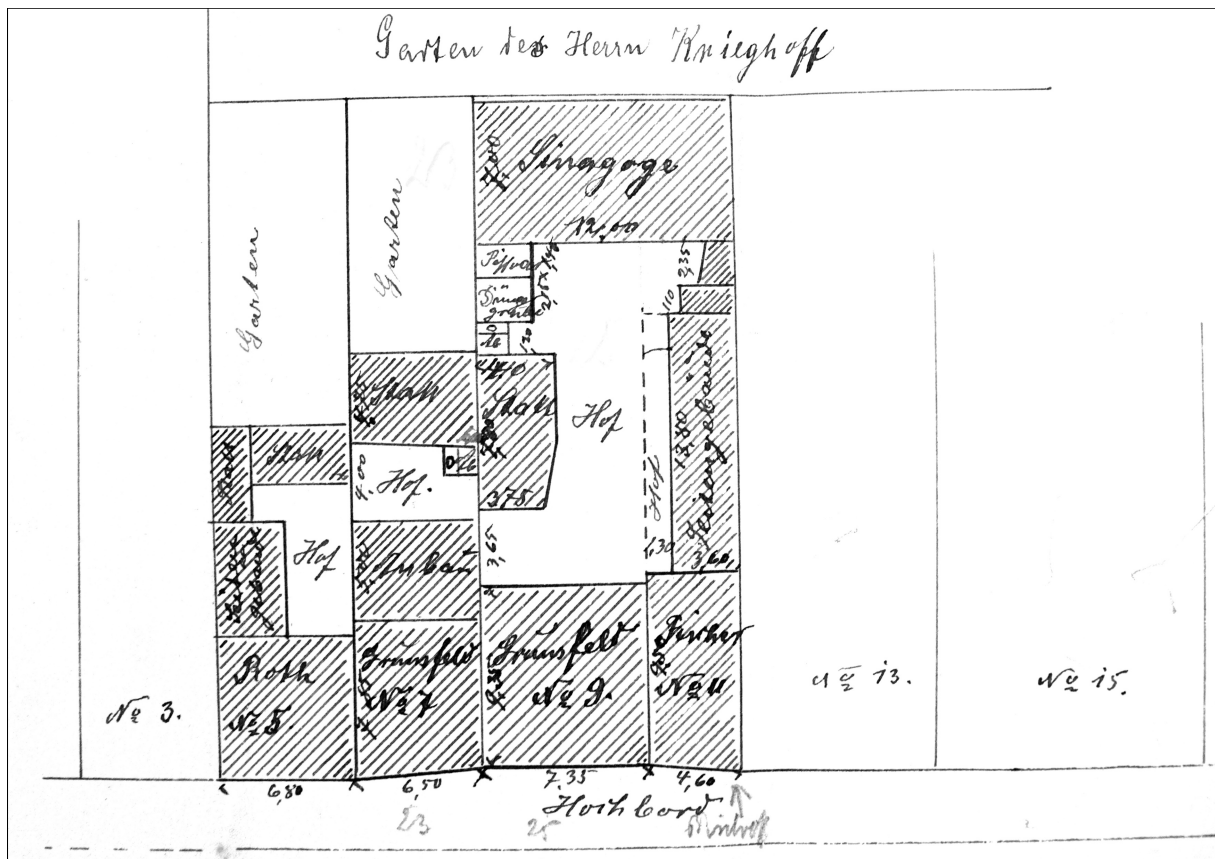 Garten des Herrn Krieghoff
Garten
Garten
7,00
Sinagoge
12,00
Pissoir
Dünger
grube
2,35
1,10
1,20
4,40
Stall
Stall
Hof
Hof
13,80
Seitengebäude
Stall
Stall
4,00
Hof.
3,75
Seiten
gebäude
Hof
Anbau
3,65
1,30
3,60
Roth
No 5.
Grünsfeld
No 7
Grünsfeld
No 9.
Fischer
9,50
No 11
No 3.
No 13.
No 15.
6,80
6,50
7,35
4,60
Hochbord
23
25